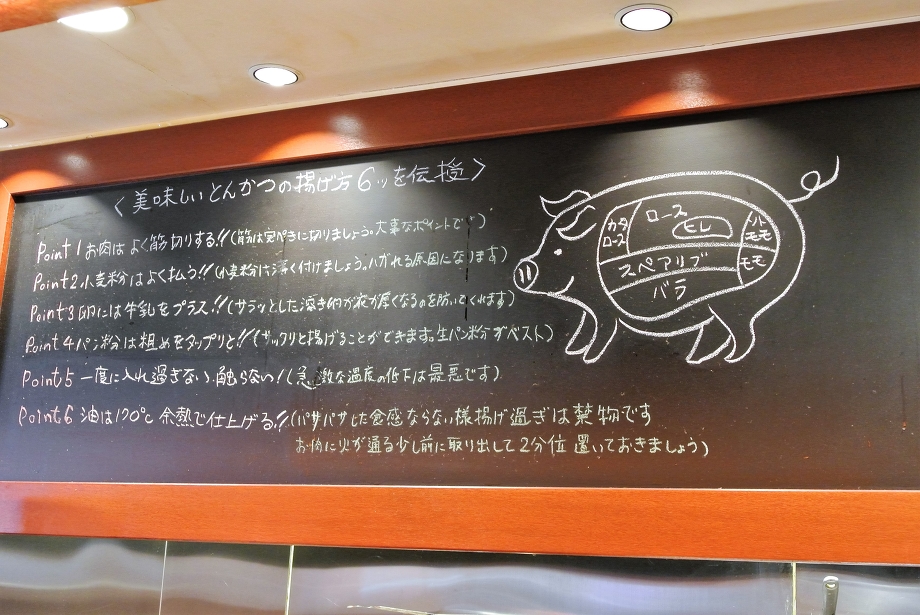 〈美味しいとんかつの揚げ方 6ッを伝授〉
Point1 お肉は よく筋切りする!!(筋は完ぺきに切りましょう。大事なポイントで)
Point2 小麦粉は よく払う!!(小麦粉は薄く付けましょう。ハガれる原因になります)
Point3 卵には牛乳をプラス!!(サラッとした溶き卵が衣が厚くなるのを防いでくれます)
Point4 パン粉は粗めをタップリと!!(サックリと揚げることができます。生パン粉がベスト)
Point5 一度に入れ過ぎない、触らない!(急激な温度の低下は最悪です)
Point6 油は170℃ 余熱で仕上げる!!(パサパサした食感ならない様揚げ過ぎは禁物です
お肉に火が通る少し前に取り出して2分位 置いておきましょう)
カタロース
ロース
ヒレ
ソトモモ
モモ
スペアリブ
バラ